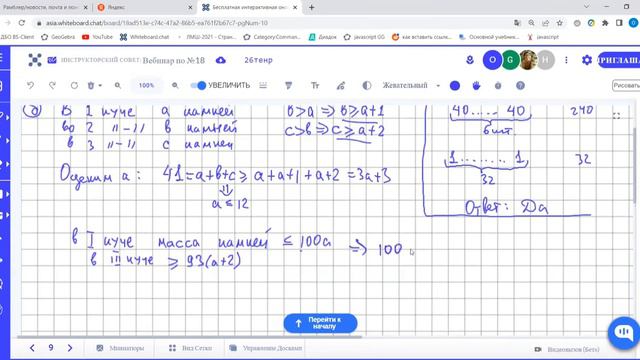 Рамблер/новости, почта и пои
Яндекс
Бесплатная интерактивная он
asia.whiteboard.chat/board/18ad513e-c74c-47a2-86b5-ea761f2b67c7-pgNum-10
ДБО BS-Client
GeoGebra
СтатГрад
Category:Comman...
ЛМШ-2021 - Google...
Диадок
javascript
как вставить ссылк...
Основной курс
javascript
ИНСТРУКТОРСКИЙ СОВЕТ:
Вебинар по №18
26тенр
O
G
H
ПРИГЛАША
100%
УВЕЛИЧИТЬ
Жевательный
в I куче a камней b>a ⇒ b≥a+1
во 2 "–" b камней c>b ⇒ c≥a+2
в 3 "–" c камней
40.....40 240
6 шт
Оценим a: 41=a+b+c≥a+a+1+a+2=3a+3
⇓
a≤12
1........1 32
32
Ответ: Да
в I куче масса камней ≤100a ⇒ 100
в III куче ≥ 93(a+2)
Перейти к началу
9
Миниатюры
Сетка
Управление Досками
Видеовызов (Бета)